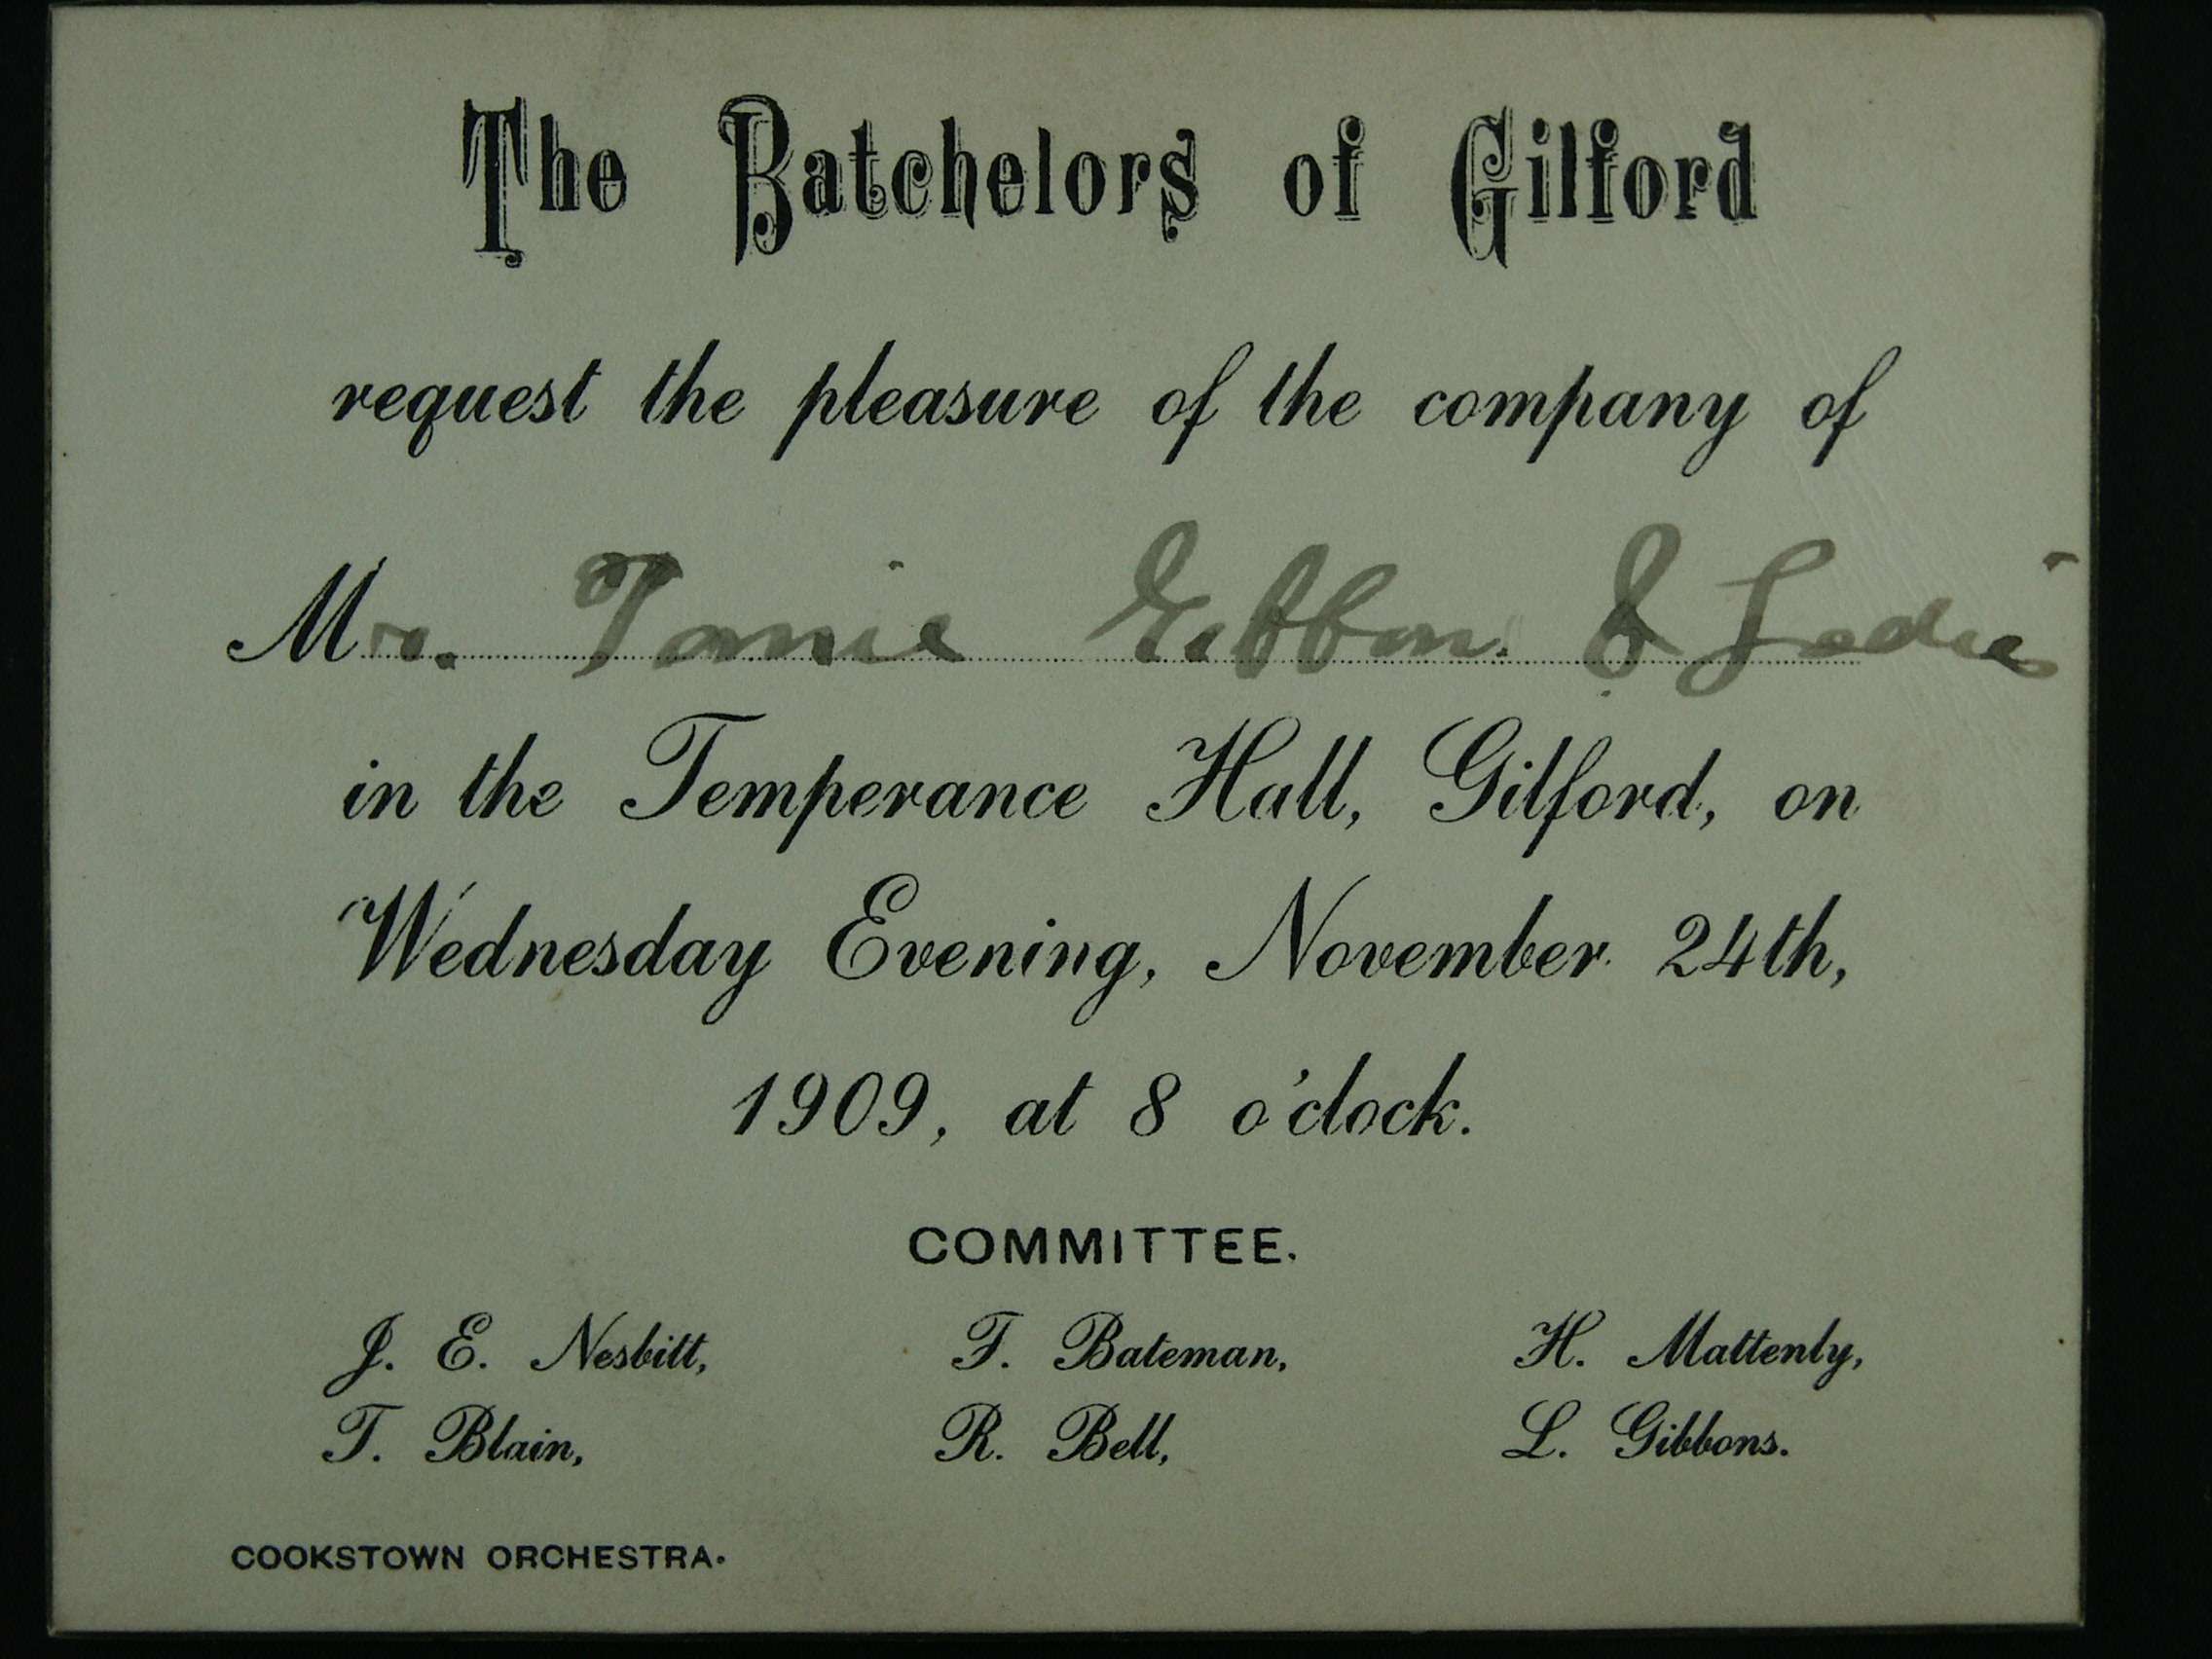 The Batchelors of Gilford
request the pleasure of the company of
Mr. Tomie Gibbon & Ladies
in the Temperance Hall, Gilford, on
Wednesday Evening, November 24th,
1909, at 8 o'clock.
COMMITTEE.
J. E. Nesbitt, F. Bateman, H. Mattenly,
T. Blain, R. Bell, L. Gibbons.
COOKSTOWN ORCHESTRA.